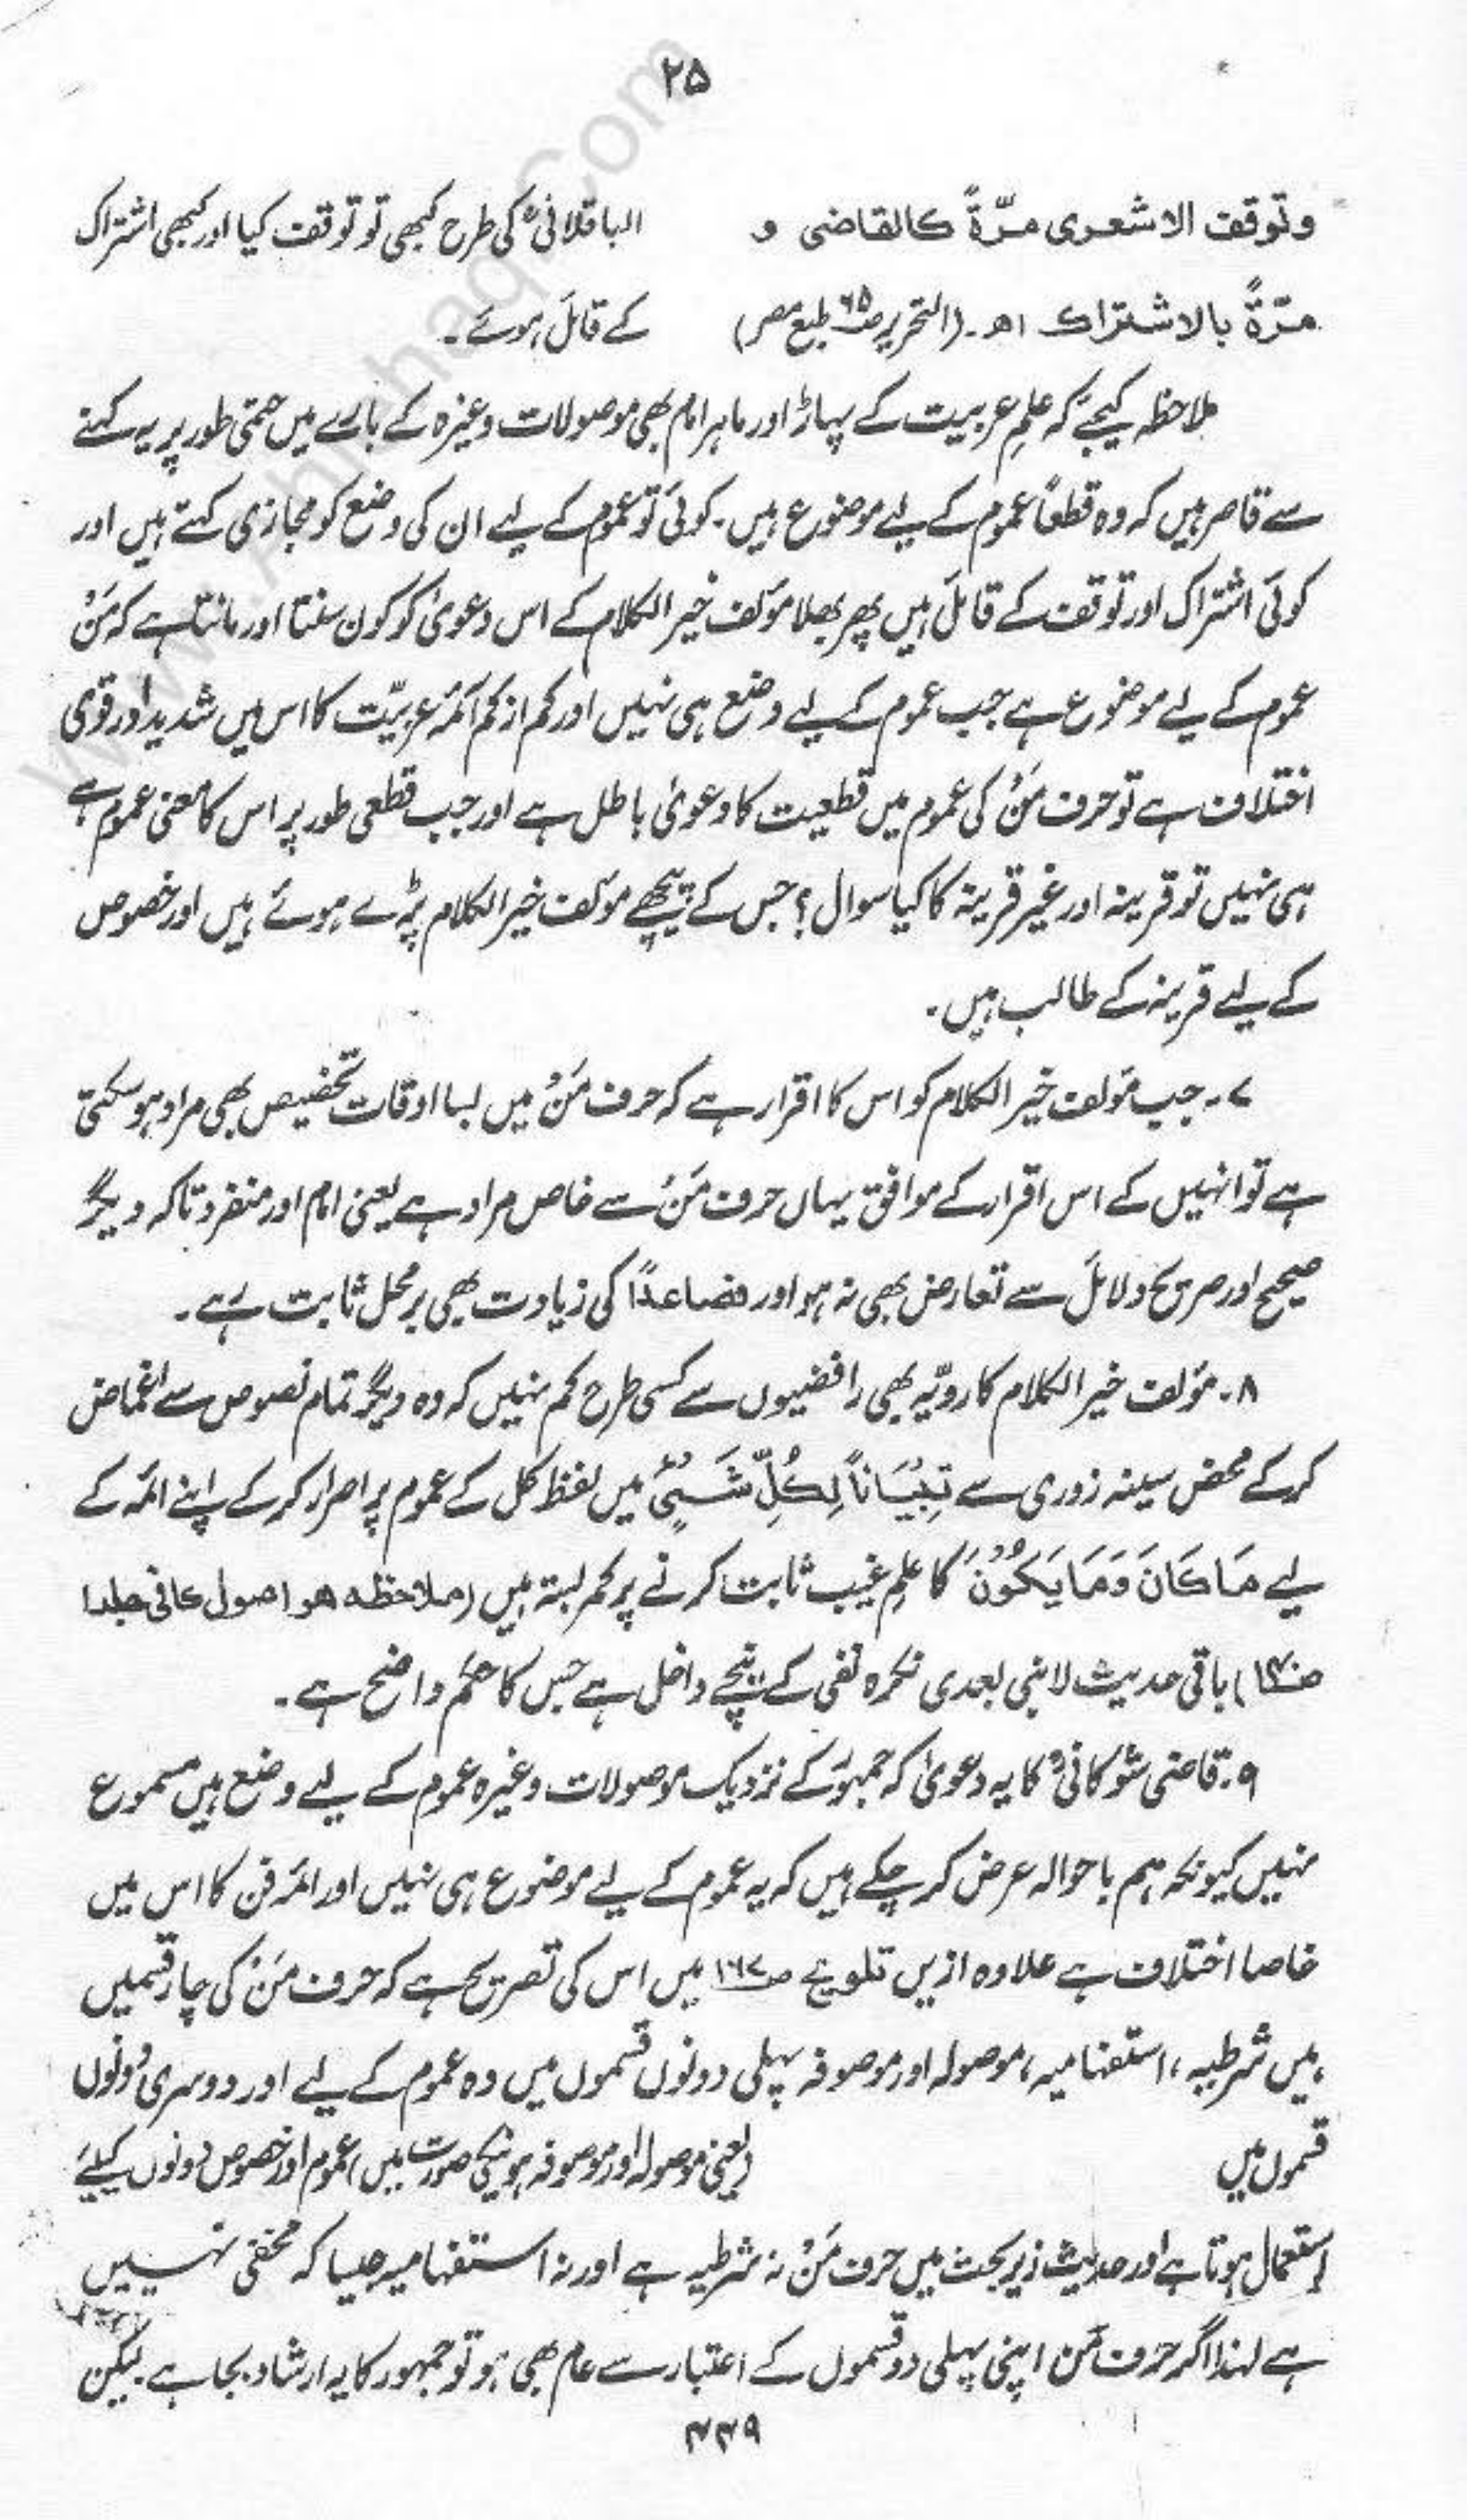 ۲۵
وتوقف الاشعری مرّةً کالقاضی و
مرّةً بالاشتراك اھ۔ (التحریر ص۶۵ طبع مصر)
الباقلانیؒ کی طرح کبھی تو توقف کیا اور کبھی اشتراک
کے قائل ہوئے۔
ملاحظہ کیجئے کہ علمِ عربیت کے پہاڑ اور ماہر امام بھی موصولات وغیرہ کے بارے میں حتمی طور پر یہ کہنے
سے قاصر ہیں کہ وہ قطعاً عموم کے لیے موضوع ہیں۔ کوئی تو عموم کے لیے ان کی وضع کو مجازی کہتے ہیں اور
کوئی اشتراک اور توقف کے قائل ہیں پھر بھلا مؤلف خیر الکلام کے اس دعویٰ کو کون سنتا اور مانتا ہے کہ مَنْ
عموم کے لیے موضوع ہے جب عموم کے لیے وضع ہی نہیں اور کم از کم ائمۂ عربیّت کا اس میں شدید اور قوی
اختلاف ہے تو حرف مَنْ کی عموم میں قطعیت کا دعویٰ باطل ہے اور جب قطعی طور پر اس کا معنی عموم ہے
ہی نہیں تو قرینہ اور غیر قرینہ کا کیا سوال؟ جس کے پیچھے مؤلف خیر الکلام پڑے ہوئے ہیں اور خصوص
کے لیے قرینہ کے طالب ہیں۔
۷۔ جب مؤلف خیر الکلام کو اس کا اقرار ہے کہ حرف مَنْ میں بسا اوقات تخصیص بھی مراد ہو سکتی
ہے تو انہیں کے اس اقرار کے موافق یہاں حرف مَنْ سے خاص مراد ہے یعنی امام اور منفرد تاکہ دیگر
صحیح اور صریح دلائل سے تعارض بھی نہ ہو اور فصاعدًا کی زیادت بھی بر محل ثابت رہے۔
۸۔ مؤلف خیر الکلام کا رویّہ بھی رافضیوں سے کسی طرح کم نہیں کہ وہ دیگر تمام نصوص سے اغماض
کر کے محض سینہ زوری سے تِبْيَانًا لِّكُلِّ شَيْئٍ میں لفظ کل کے عموم پر اصرار کر کے اپنے ائمہ کے
لیے مَا كَانَ وَمَا يَكُوْنُ کا علمِ غیب ثابت کرنے پر کمر بستہ ہیں (ملاحظہ ھو اصول کافی جلد ۱
ص۱۴۰) باقی حدیث لا نبی بعدی نکرہ نفی کے نیچے داخل ہے جس کا حکم واضح ہے۔
۹۔ قاضی شوکانیؒ کا یہ دعویٰ کہ جمہورؒ کے نزدیک موصولات وغیرہ عموم کے لیے وضع ہیں مسموع
نہیں کیونکہ ہم باحوالہ عرض کر چکے ہیں کہ یہ عموم کے لیے موضوع ہی نہیں اور ائمہ فن کا اس میں
خاصا اختلاف ہے علاوہ ازیں تلویح ص۱۶۷ میں اس کی تصریح ہے کہ حرف مَنْ کی چار قسمیں
ہیں شرطیہ، استفہامیہ، موصولہ اور موصوفہ پہلی دونوں قسموں میں وہ عموم کے لیے اور دوسری دونوں
قسموں میں (یعنی موصولہ اور موصوفہ ہونیکی صورت میں) عموم اور خصوص دونوں کیلئے
استعمال ہوتا ہے اور حدیث زیر بحث میں حرف مَنْ نہ شرطیہ ہے اور نہ استفہامیہ جیسا کہ مخفی نہیں
ہے لہٰذا اگر حرف مَن اپنی پہلی دو قسموں کے اعتبار سے عام بھی ہو تو جمہور کا یہ ارشاد بجا ہے لیکن
۴۳۹
www.Ahlehaq.Com